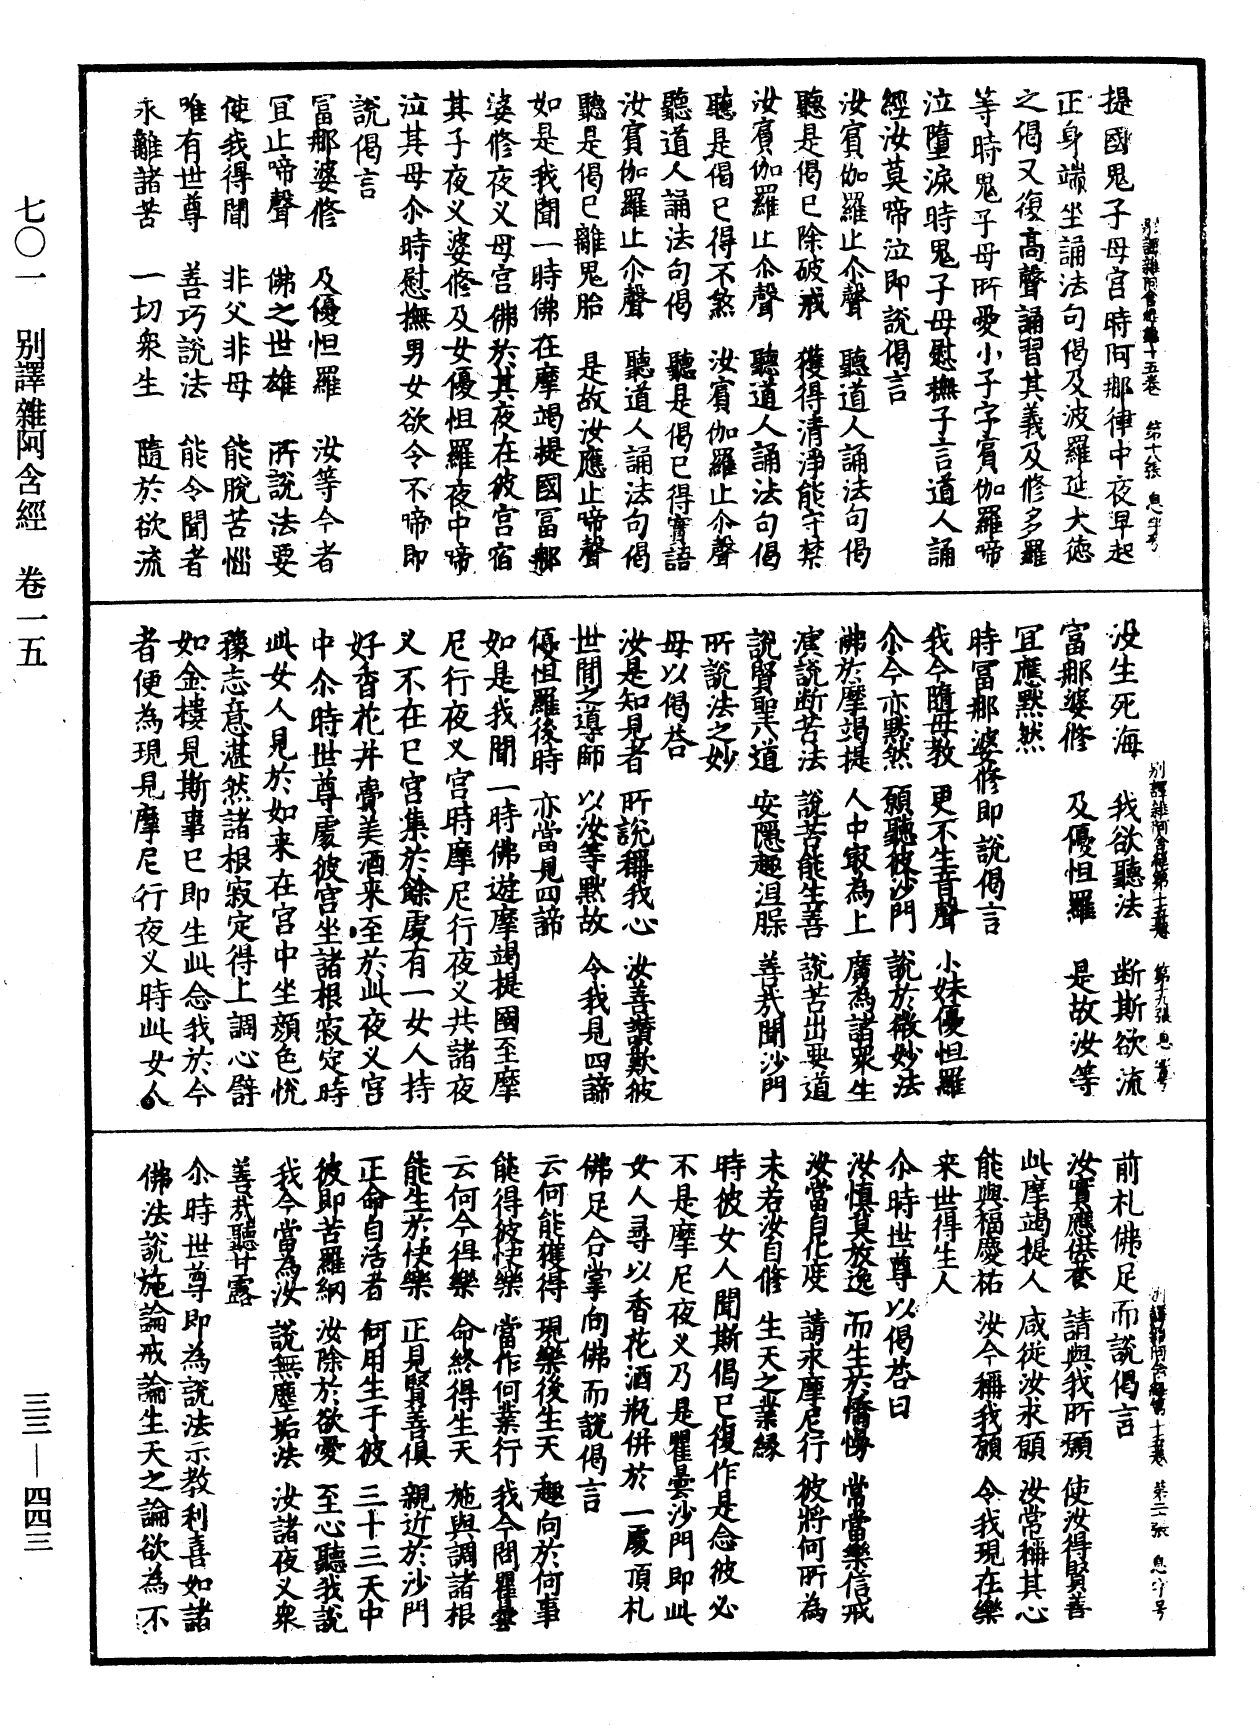 別譯雜阿含經第十五卷　第十八張　息字号
提國鬼子母宮時阿那律中夜早起
正身端坐誦法句偈及波羅延大徳
之偈又復髙聲誦習其義及修多羅
等時鬼子母所愛小子字賓伽羅啼
泣墮淚時鬼子母慰撫子言道人誦
經汝莫啼泣即說偈言
汝賓伽羅止尒聲　聽道人誦法句偈
聽是偈已除破戒　獲得清淨能守禁
汝賓伽羅止尒聲　聽道人誦法句偈
聽是偈已得不煞　汝賓伽羅止尒聲
聽道人誦法句偈　聽是偈已得實語
汝賓伽羅止尒聲　聽道人誦法句偈
聽是偈已離鬼胎　是故汝應止啼聲
如是我聞一時佛在摩竭提國冨那
婆修夜叉母宮佛於其夜在彼宮宿
其子夜叉婆修及女優怛羅夜中啼
泣其母尒時慰撫男女欲令不啼即
說偈言
冨那婆修　及優怛羅　汝等今者
冝止啼聲　佛之世雄　所說法要
使我得聞　非父非母　能脫苦惱
唯有世尊　善巧說法　能令聞者
永離諸苦　一切衆生　隨於欲流
別譯雜阿含經第十五卷　第十九張　息字号
没生死海　我欲聽法　断斯欲流
冨那婆修　及優怛羅　是故汝等
冝應黙然
時冨那婆修即說偈言
我今隨母教　更不生音聲　小妹優怛羅
尒今亦黙然　願聽彼沙門　說於微妙法
佛於摩竭提　人中㝡為上　廣為諸衆生
演說断苦法　說苦能生善　說苦出要道
說賢聖八道　安隱趣涅槃　善㢤聞沙門
所說法之妙
母以偈荅
汝是知見者　所說稱我心　汝善讚歎彼
世間之導師　以汝等黙故　令我見四諦
優怛羅後時　亦當見四諦
如是我聞一時佛遊摩竭提國至摩
尼行夜叉宮時摩尼行夜叉共諸夜
叉不在已宮集於餘處有一女人持
好香花并賷美酒来至於此夜叉宮
中尒時世尊處彼宮坐諸根㝡定時
此女人見於如来在宮中坐顔色恱
豫志意湛然諸根寂定得上調心譬
如金樓見斯事已即生此念我於今
者便為現見摩尼行夜叉時此女人
別譯雜阿含經第十五卷　第二十張　息字号
前札佛足而說偈言
汝實應供養　請與我所願　使汝得賢善
此摩竭提人　咸從汝求願　汝常稱其心
能與福慶祐　汝今稱我願　令我現在樂
来世得生人
尒時世尊以偈荅曰
汝慎莫放逸　而生於憍慢　常當樂信戒
汝當自化度　請求摩尼行　彼將何所為
未若汝自修　生天之業縁
時彼女人聞斯偈已復作是念彼必
不是摩尼夜叉乃是瞿曇沙門即此
女人尋以香花酒瓶併於一處頂札
佛足合掌向佛而說偈言
云何能獲得　現樂後生天　趣向於何事
能得彼快樂　當作何業行　我今問瞿曇
云何今得樂　命終得生天　施與調諸根
能生於快樂　正見賢善俱　親近於沙門
正命自活者　何用生于彼　三十三天中
彼即苦羅網　汝除於欲愛　至心聽我說
我今當為汝　說無塵垢法　汝諸夜叉衆
善㢤聽甘露
尒時世尊即為說法示教利喜如諸
佛法說施論戒論生天之論欲為不
七〇一　别譯雜阿含經　卷一五
三三—四四三